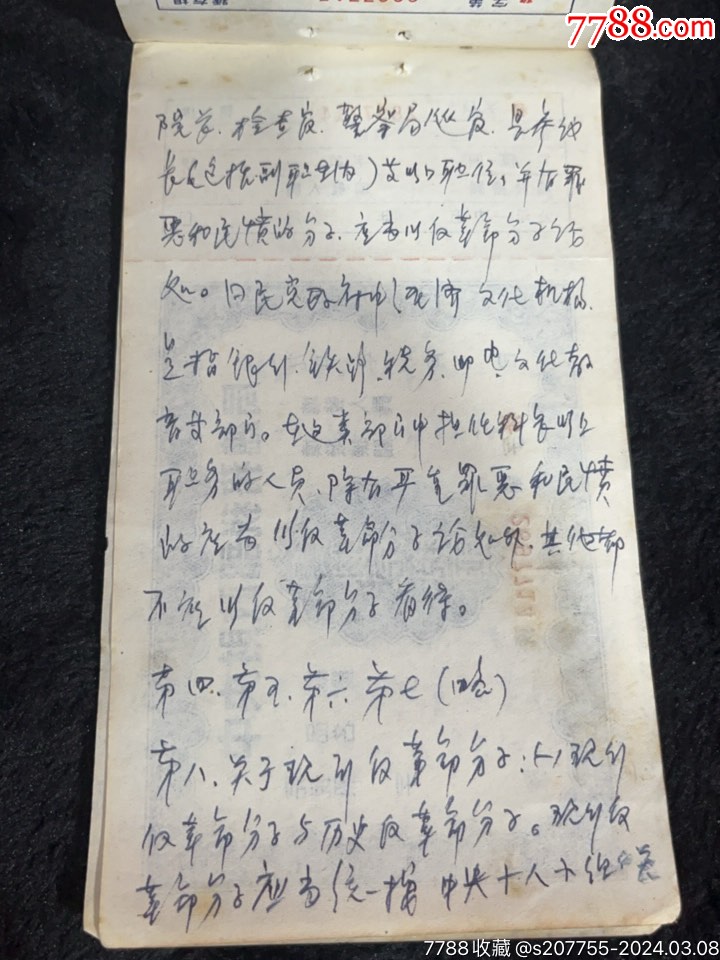 7788.com
院长、检查长、警察局他长、县参议
长(包括副职在内)以上职位,并有罪
恶和民愤的分子,应当以反革命分子论
处。国民党政府中经济文化机构,
是指银行、铁路、税务、邮电、文化教
育等部门。在这类部门中担任科长以上
职务的人员,除有严重罪恶和民愤
的应当以反革命分子论处外,其他都
不应以反革命分子看待。
第四、第五、第六、第七(略)
第八、关于现行反革命分子:(一)现行
反革命分子与历史反革命分子。现行反
革命分子应当统一按中央十人小组
7788收藏@s207755-2024.03.08